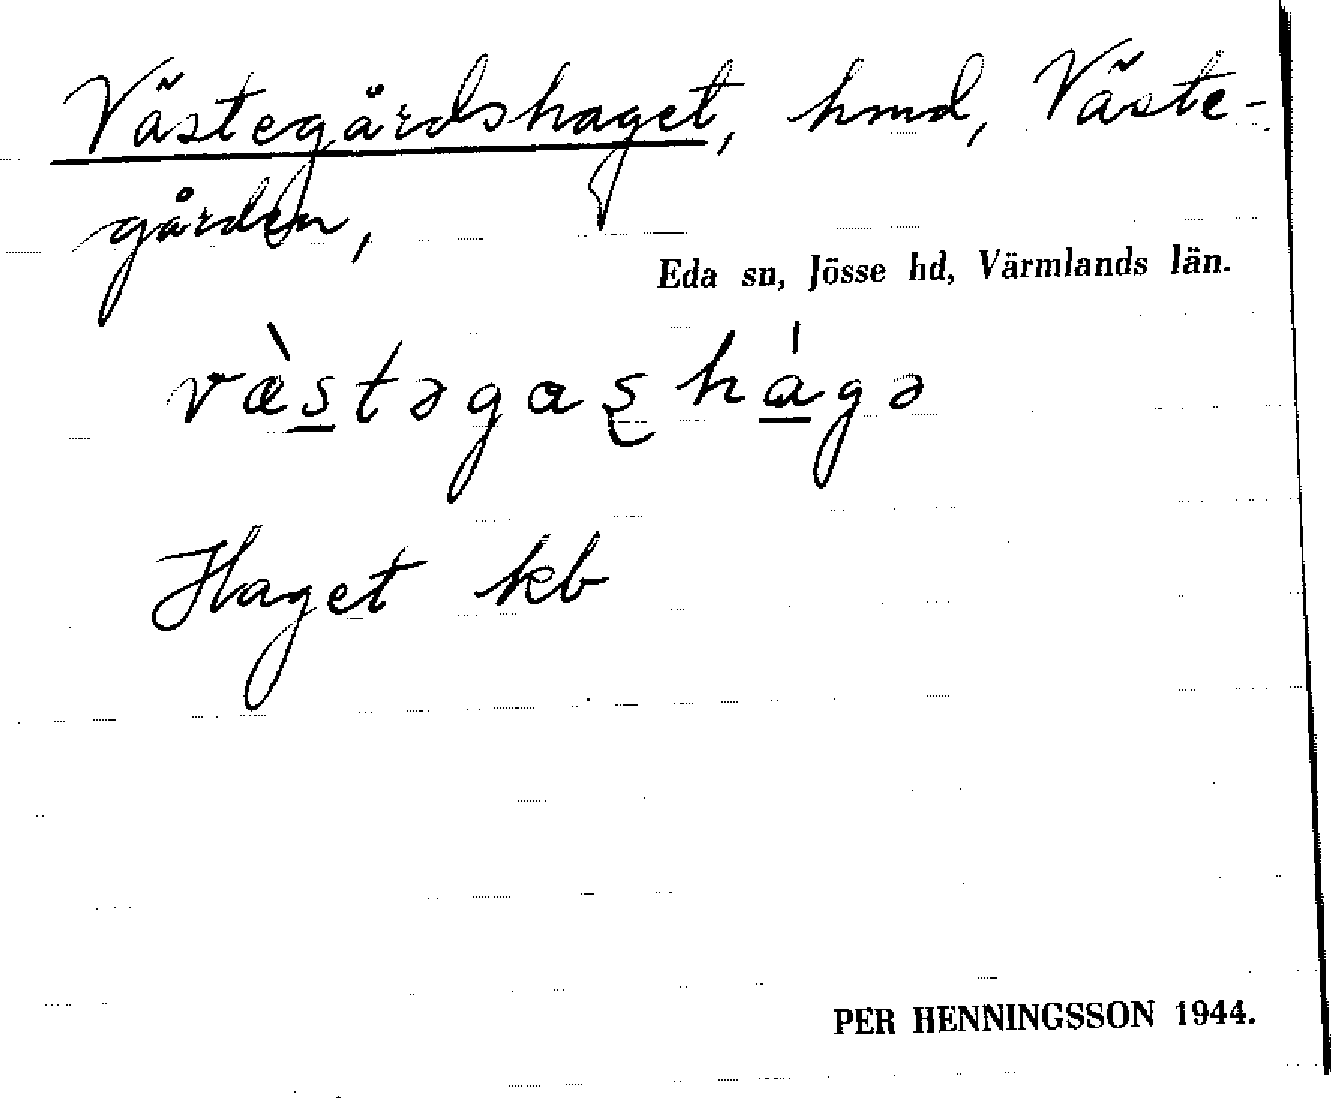 Västegårdshaget, hmd, Väste-
gården,
Eda sn, Jösse hd, Värmlands län.
væ̀s̲təgaʂhá̲gə
Haget kb
PER HENNINGSSON 1944.